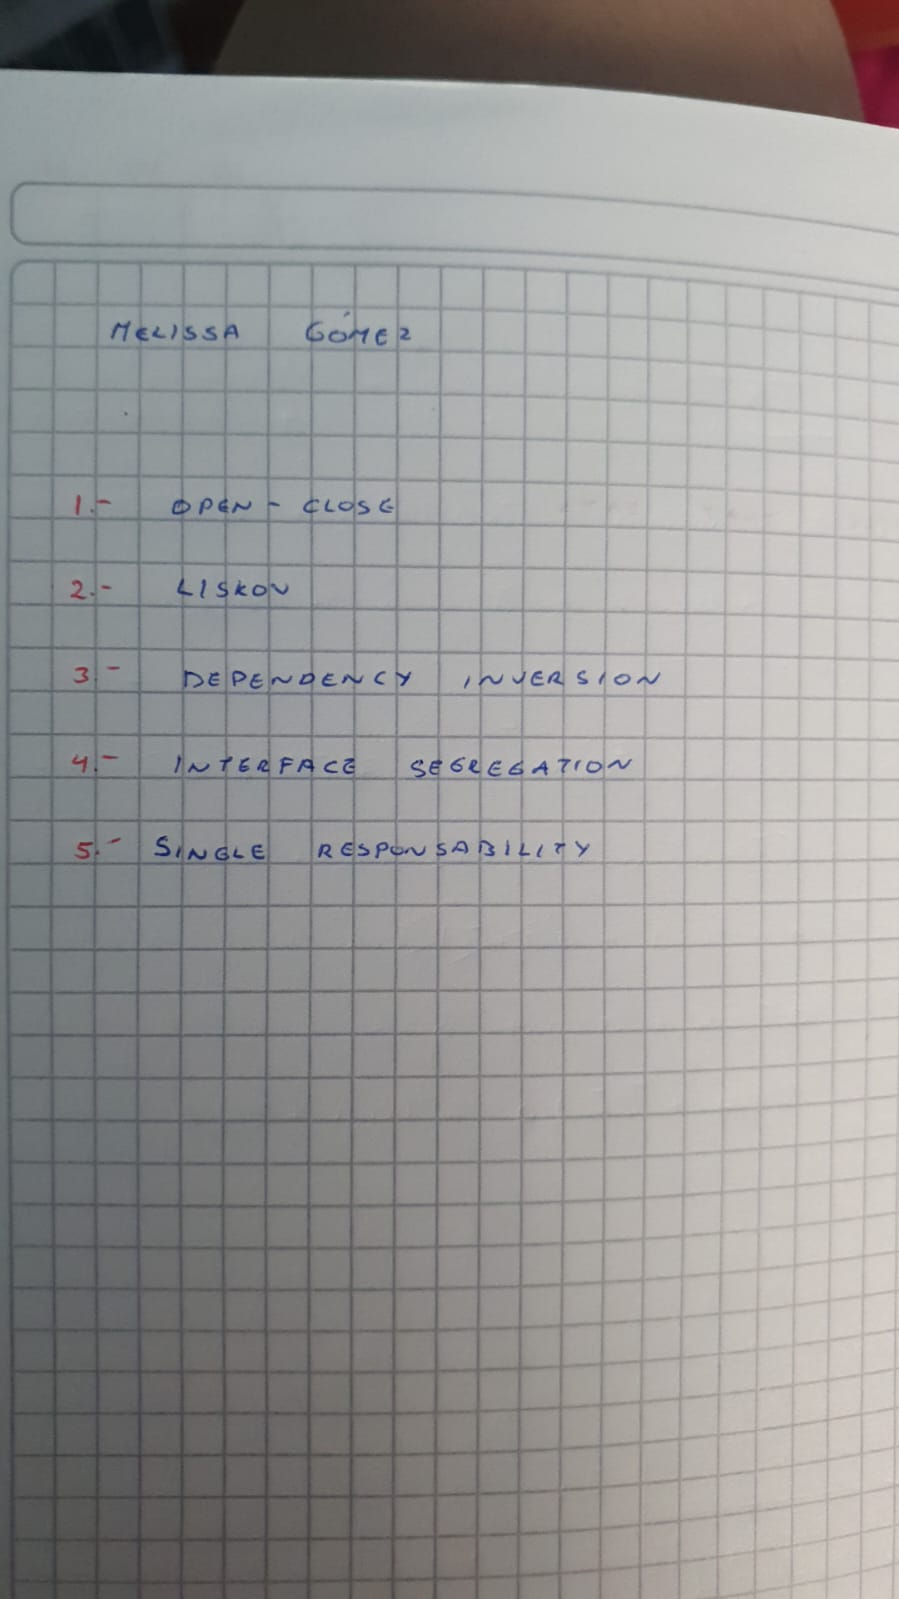 MELISSA GÓMEZ
1.- OPEN - CLOSE
2.- LISKOV
3.- DEPENDENCY INVERSION
4.- INTERFACE SEGREGATION
5.- SINGLE RESPONSABILITY